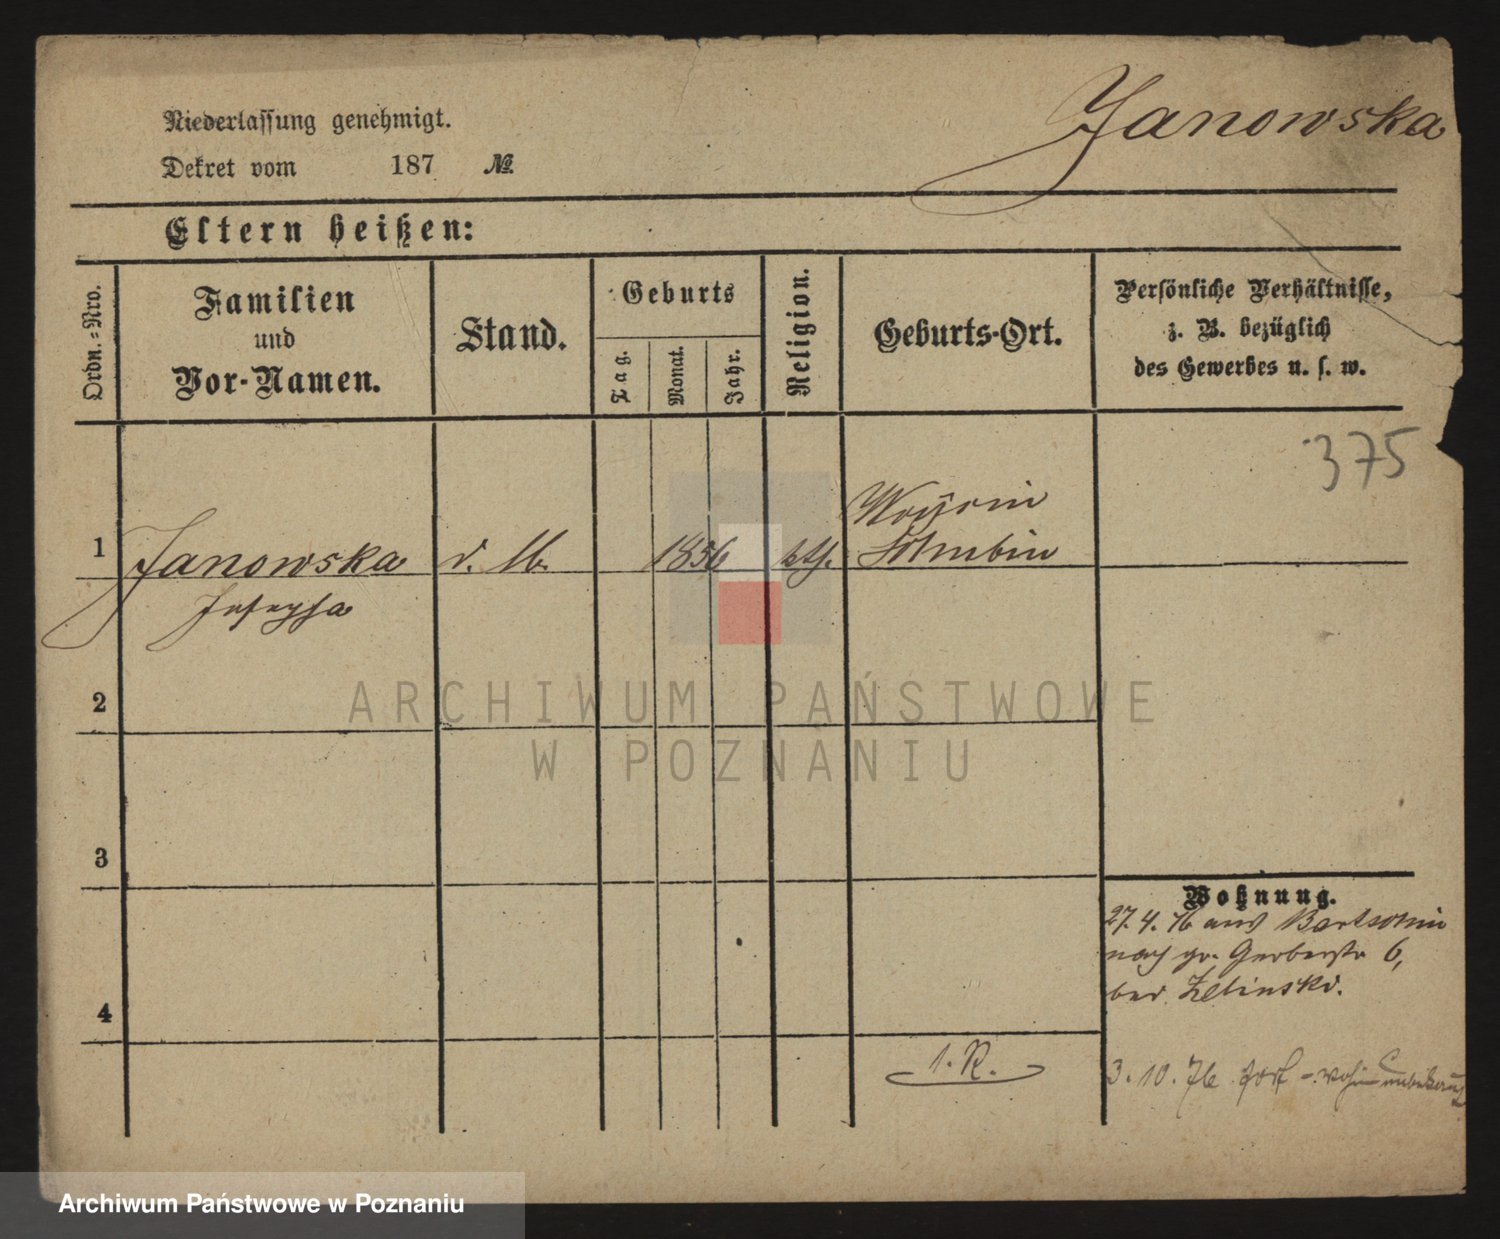 Janowska
Niederlassung genehmigt.
Dekret vom 187 №
Eltern heißen:
Ordn.=Nro.
Familien
und
Vor-Namen.
Stand.
Geburts
Tag.
Monat.
Jahr.
Religion.
Geburts-Ort.
Persönliche Verhältnisse,
z. B. bezüglich
des Gewerbes u. s. w.
375
1
Janowska
Josepha
d. M.
1856
kth.
Schubin
2
3
4
Wohnung.
27. 4. 76 aus Bartschin
nach gr. Gerberstr 6,
bei Zelinski.
1. R.
3. 10. 76 fort - wohin unbekannt
ARCHIWUM PAŃSTWOWE
W POZNANIU
Archiwum Państwowe w Poznaniu